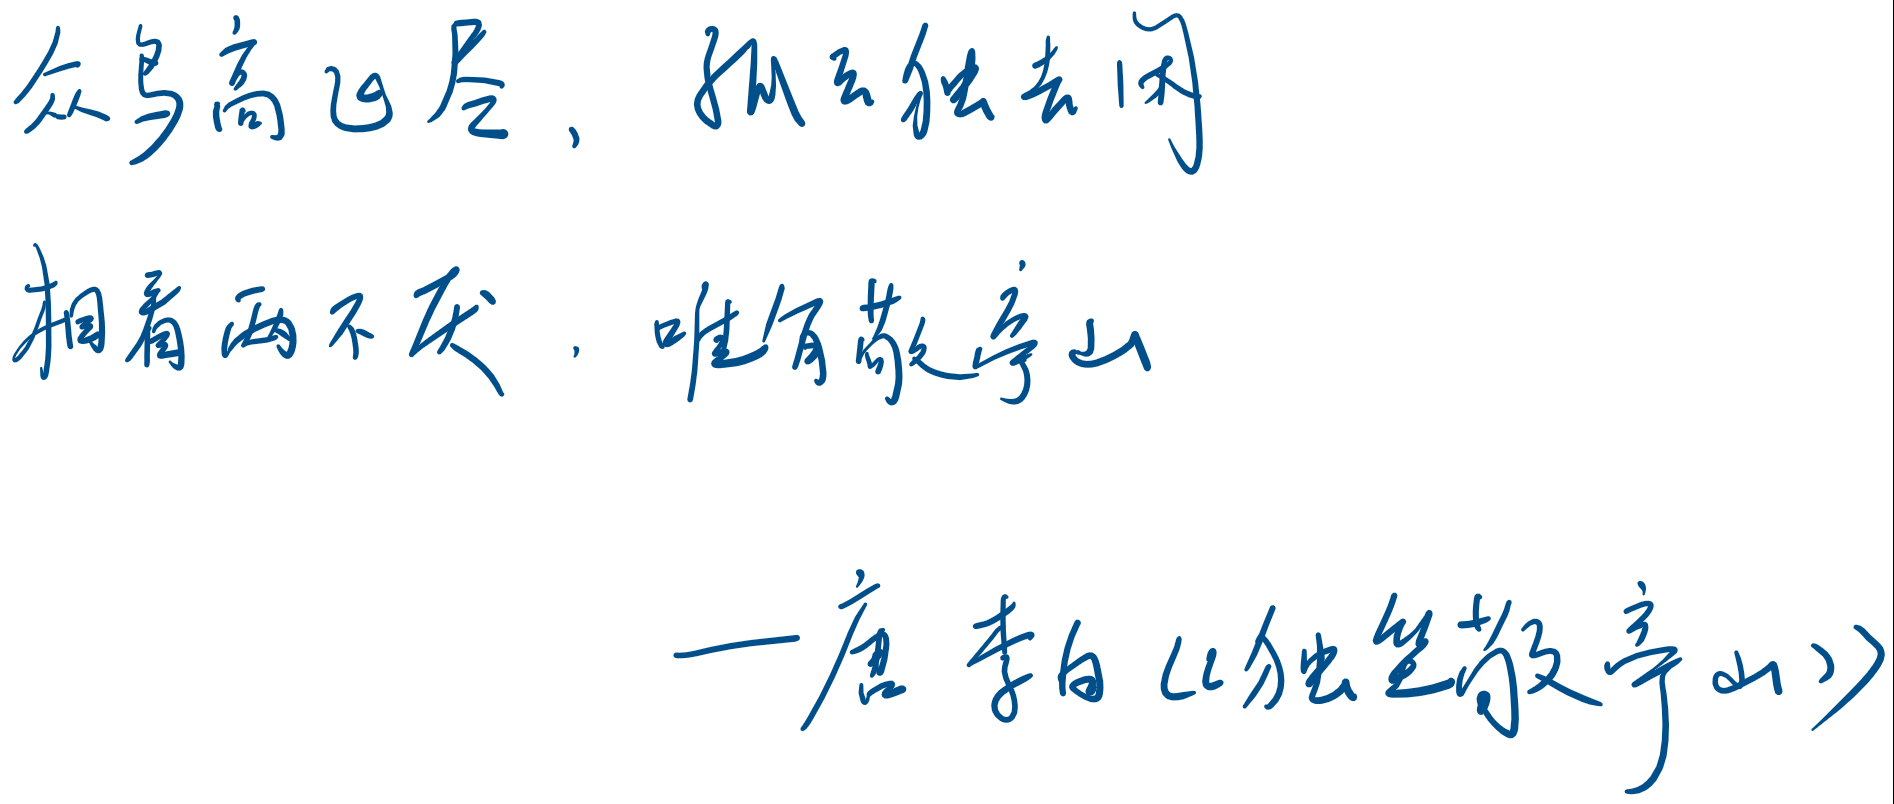 众鸟高飞尽，孤云独去闲
相看两不厌，唯有敬亭山
——唐 李白《独坐敬亭山》